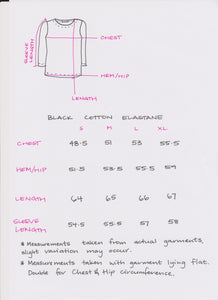 SLEEVE LENGTH
CHEST
HEM/HIP
LENGTH
BLACK COTTON ELASTANE
S M L XL
CHEST 48.5 51 53 55.5
HEM/HIP 51.5 53.5 55.5 59
LENGTH 64 65 66 67
SLEEVE LENGTH 54.5 55.5 57 58
* Measurements taken from actual garments,
slight variation may occur.
* Measurements taken with garment lying flat.
Double for Chest & Hip circumference.